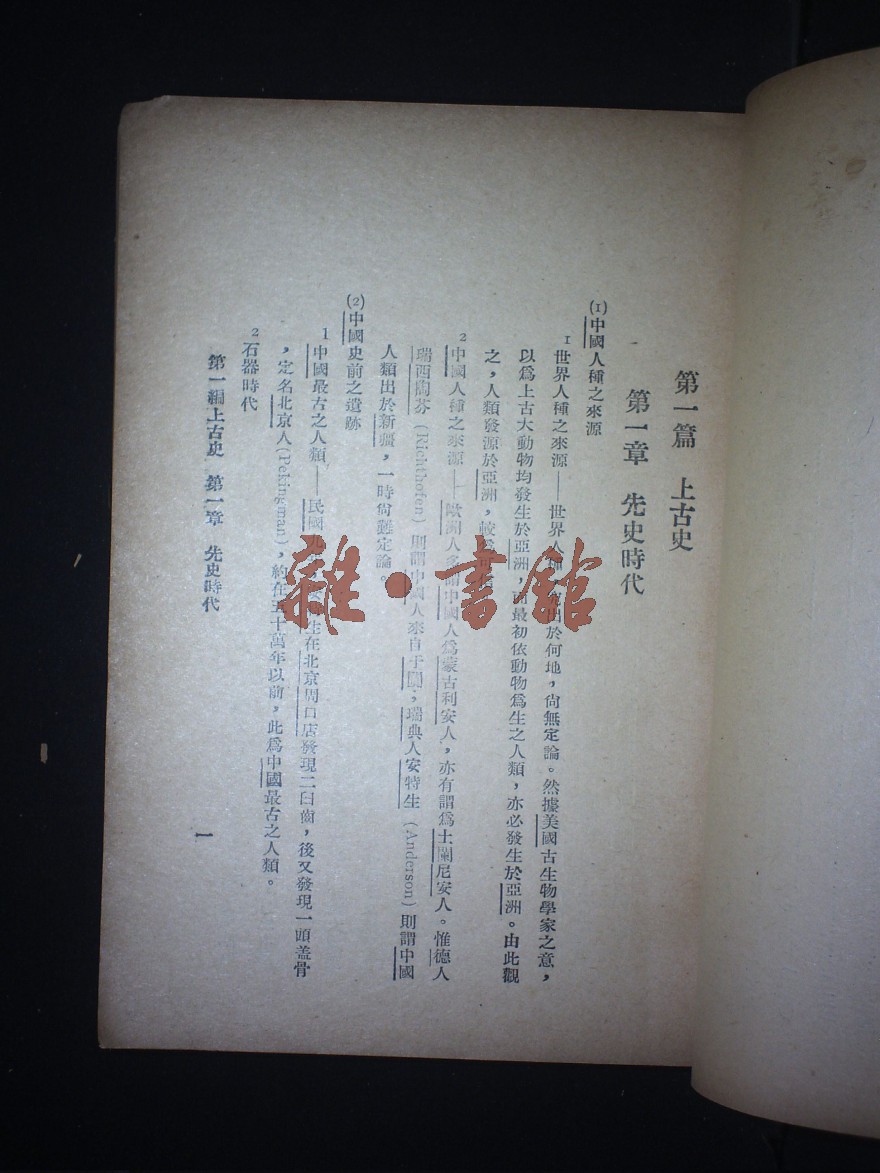 第一篇 上古史
第一章 先史時代
(1)中國人種之來源
1 世界人種之來源——世界人種，出於何地，尙無定論。然據美國古生物學家之意，
以爲上古大動物均發生於亞洲，而最初依動物爲生之人類，亦必發生於亞洲。由此觀
之，人類發源於亞洲，較爲可
2 中國人種之來源——歐洲人多謂中國人爲蒙古利安人，亦有謂爲土闌尼安人。惟德人
瑞西陶芬（Richthofen）則謂中國人來自于闐；瑞典人安特生（Anderson）則謂中國
人類出於新疆，一時尙難定論。
(2)中國史前之遺跡
1 中國最古之人類——民國九生在北京周口店發現二臼齒，後又發現一頭盖骨
，定名北京人(Pekingman)，約在五十萬年以前，此爲中國最古之人類。
2 石器時代
第一編上古史 第一章 先史時代
一
雜·書館